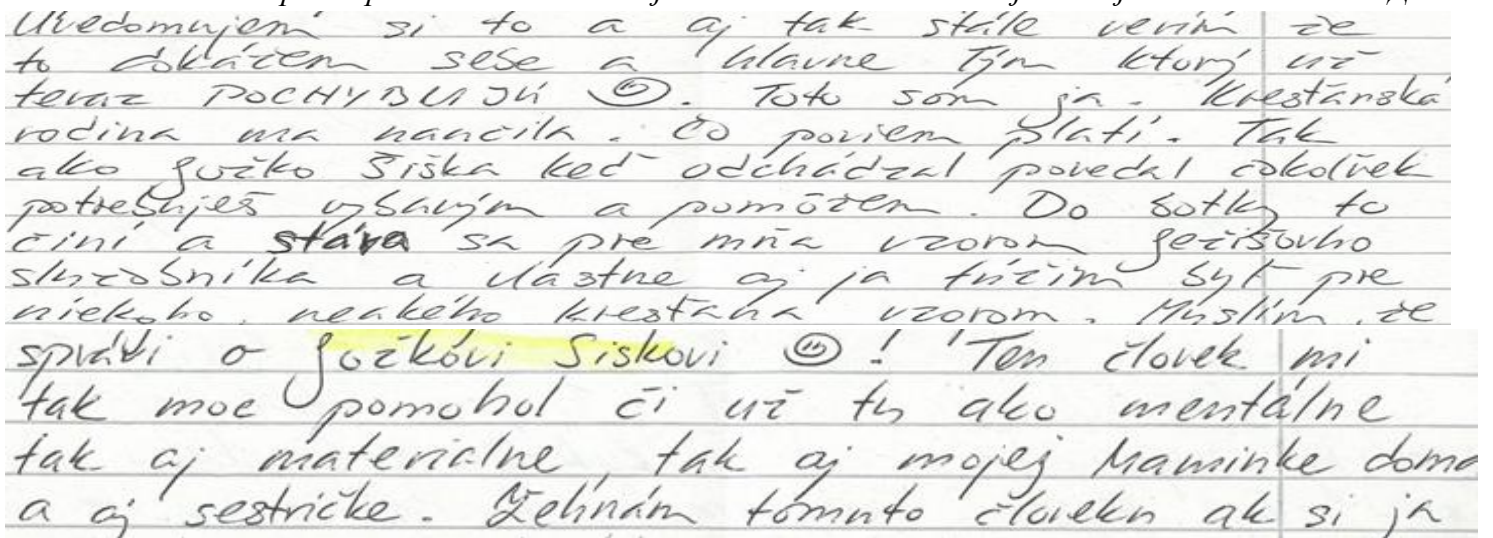 Uvedomujem si to a aj tak stále verím že
to dokážem sebe a hlavne Tým ktorý už
teraz POCHYBUJÚ ☺. Toto som ja. Kresťánská
rodina ma naučila. Čo poviem platí. Tak
ako Jožko Šiška keď odchádzal povedal čokoľvek
potrebuješ vybavým a pomôžem. Do botky to
činí a stáva sa pre mňa vzorom Ježišovho
služobníka a vlastne aj ja túžim byť pre
niekoho neakého kresťana vzorom. Myslím, že
o Jožkóvi Siskovi ☺! Ten človek mi
tak moc pomohol či už tu ako mentálne
tak aj materialne, tak aj mojej Maminke doma
a aj sestričke. Žehnám tomuto človeku ak si ja